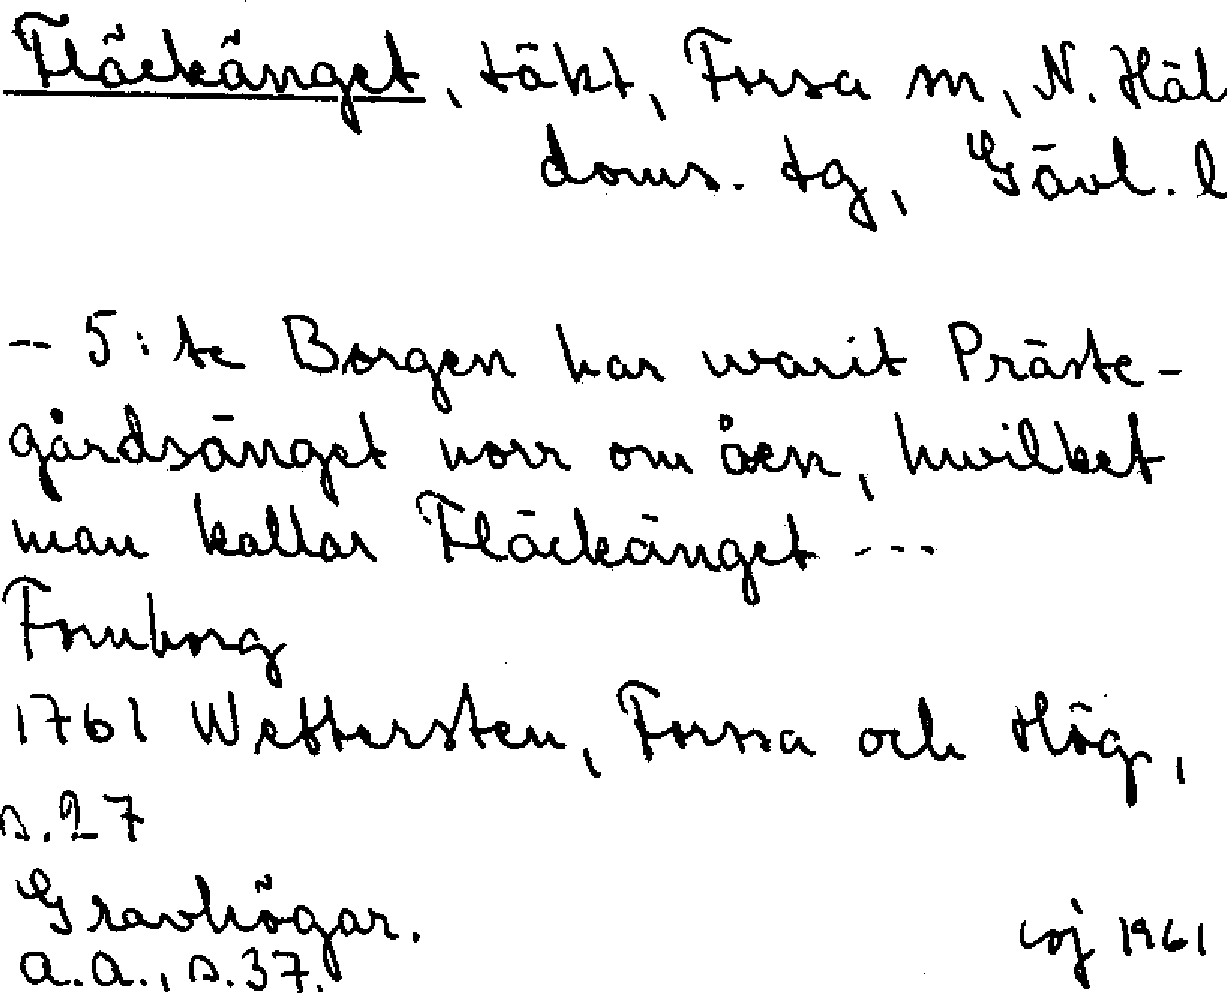 Fläckänget, täkt, Forsa sn, N. Häl
doms. tg, Gävl. l
-- 5:te Borgen har warit Präste-
gårdsänget norr om åen, hwilket
man kallar Fläckänget ---
Fornborg
1761 Wettersten, Forssa och Hög,
s. 27
Gravhögar.
a.a., s. 37.
1961